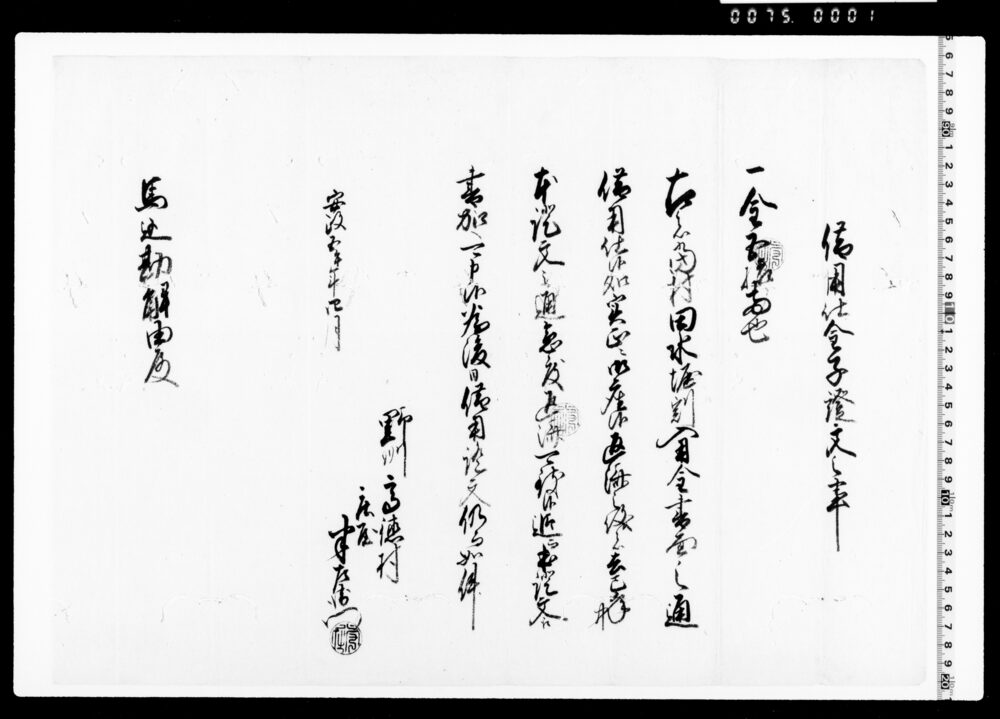 借用仕金子證文之事
一金五拾両也
右者当村田水堀割入用金書面之通
借用仕候処実正ニ御座候返済之儀者去巳年
本證文之通急度返済可致候追而本證文江
書加可申候為後日借用證文仍而如件
安政五午年四月
野州高徳村
名主
半左衛門
馬込勘解由殿
0075.0001